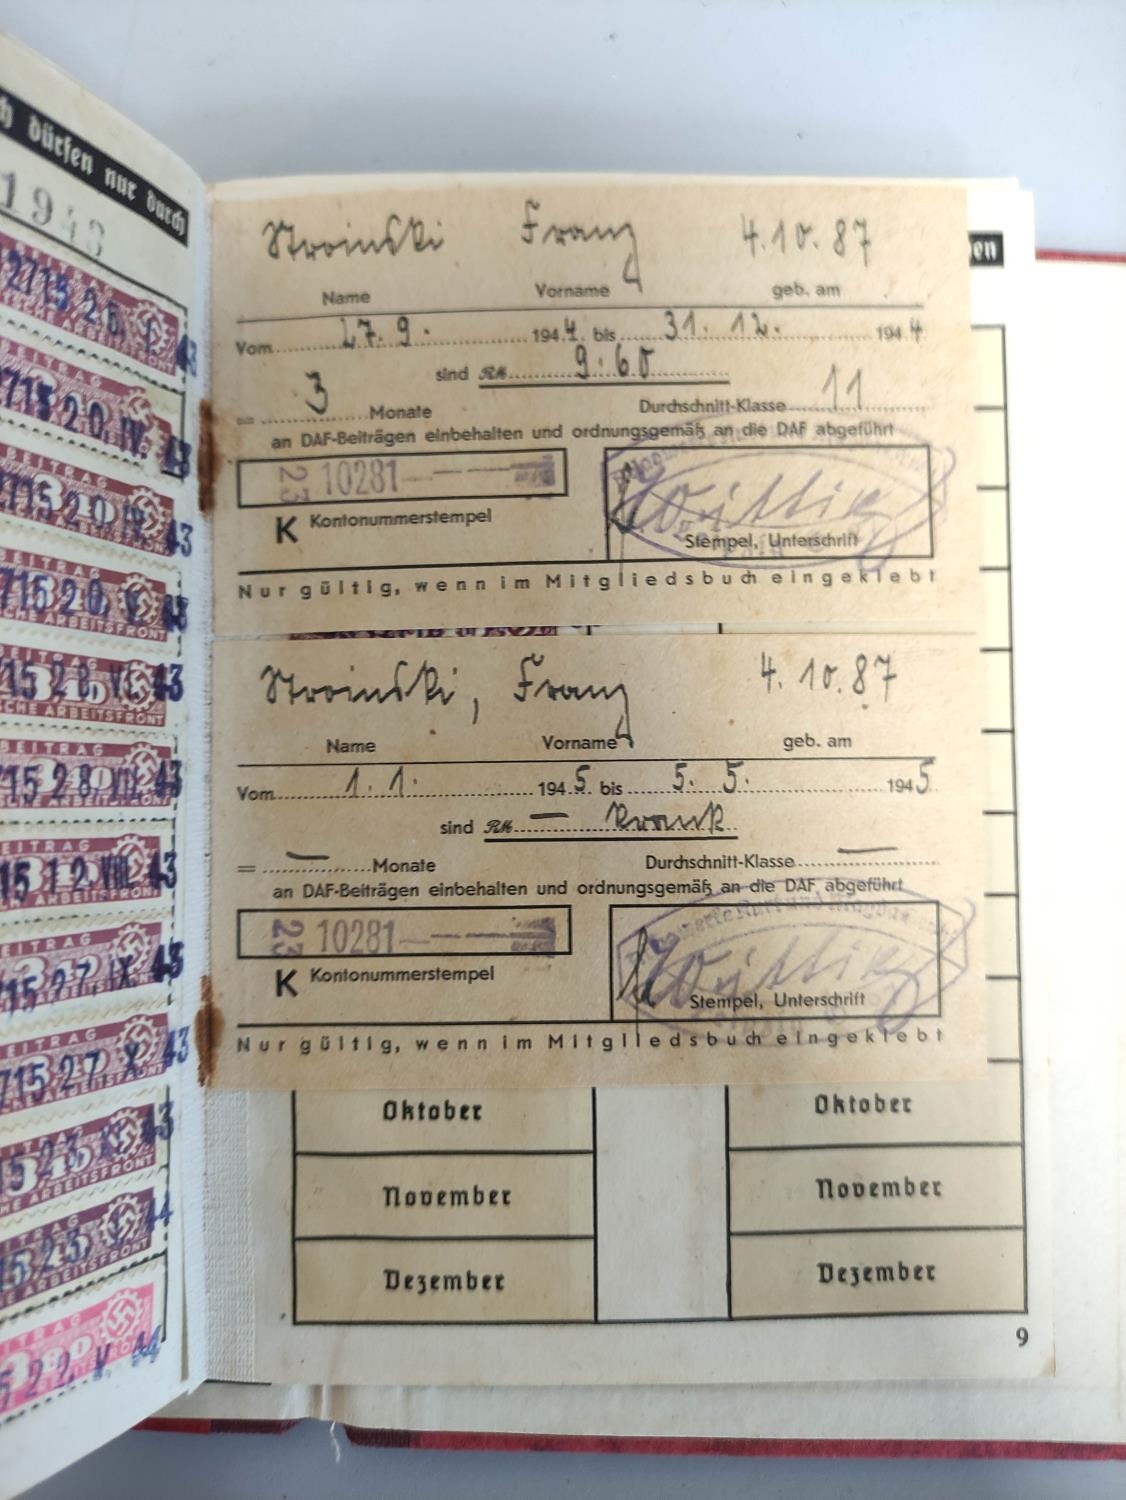 ch dürfen nur durch
1943
BEITRAG
2715 25. I. 43
BEITRAG
2715 20. IV. 43
BEITRAG
2715 20. IV. 43
715 20. V. 43
DEUTSCHE ARBEITSFRONT
BEITRAG
715 28. VI. 43
SCHE ARBEITSFRONT
BEITRAG
715 28. VII. 43
BEITRAG
15 12. VIII. 43
BEITRAG
715 27. IX. 43
BEITRAG
715 27. X. 43
BEITRAG
15 23. XI. 43
BEITRAG
15 23. I. 44
ARBEITSFRONT
BEITRAG
5 22. V. 44
en
Stroinski Franz 4.10.87
Name Vorname geb. am
Vom 27.9. 1944 bis 31.12. 1944
sind RM 9.60
= 3 Monate Durchschnitt-Klasse 11
an DAF-Beiträgen einbehalten und ordnungsgemäß an die DAF abgeführt
23 10281
K Kontonummerstempel
Stempel, Unterschrift
Nur gültig, wenn im Mitgliedsbuch eingeklebt
Stroinski, Franz 4.10.87
Name Vorname geb. am
Vom 1.1. 1945 bis 5.5. 1945
sind RM — krank
= — Monate Durchschnitt-Klasse —
an DAF-Beiträgen einbehalten und ordnungsgemäß an die DAF abgeführt
23 10281
K Kontonummerstempel
Stempel, Unterschrift
Nur gültig, wenn im Mitgliedsbuch eingeklebt
Oktober Oktober
November November
Dezember Dezember
9